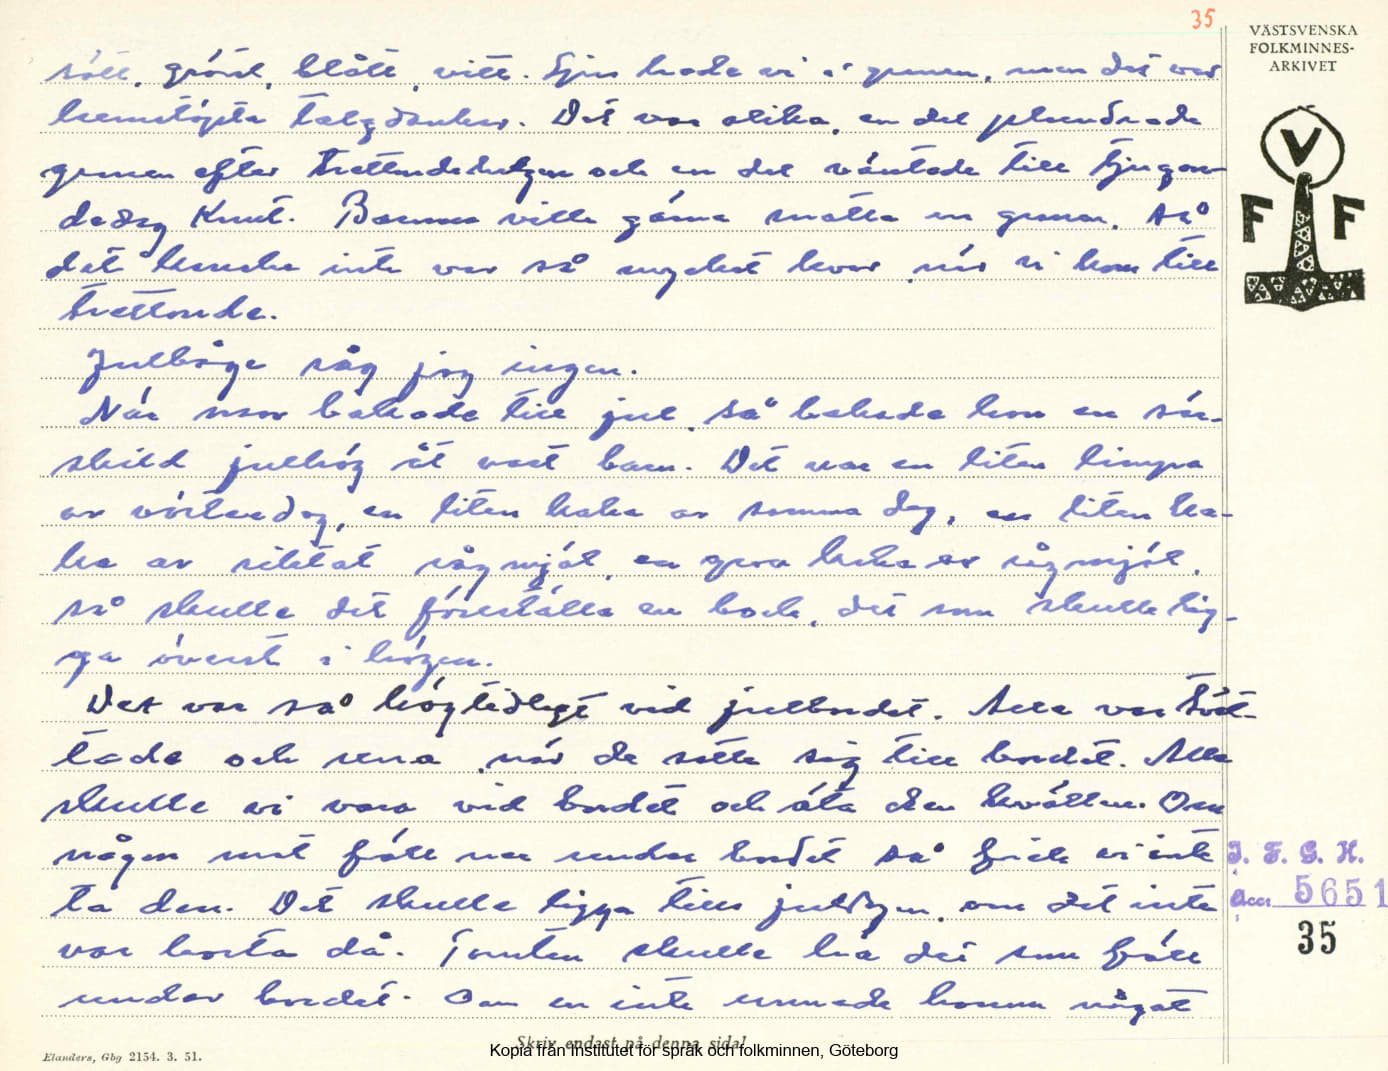 35
VÄSTSVENSKA
FOLKMINNES-
ARKIVET
V
F F
rött, grönt, blått, vitt. Ljus hade vi i granen, men det var
hemstöpta talgdankar. Det var olika, en del plundrade
granen efter trettondehelgen och en del väntade till tjugon-
dedag Knut. Barnen ville gärna snatta ur granen, så
det kanske inte var så mycket kvar, när vi kom till
trettonde.
Julbåge såg jag ingen.
När mor bakade till jul, så bakade hon en sär-
skild julhög åt vart barn. Det var en liten limpa
av vörtardeg, en liten kaka av samma deg, en liten ka-
ka av siktat rågmjöl, en grov kaka av rågmjöl,
så skulle det föreställa en bock, det som skulle lig-
ga överst i högen.
Det var så högtidligt vid julbordet. Alla var tvät-
tade och rena, när de satte sig till bordet. Alla
skulle vi vara vid bordet och äta den kvällen. Om
någon mat föll ner under bordet så fick vi inte
ta den. Det skulle ligga till juldagen, om det inte
var borta då. Tomten skulle ha det som föll
under bordet. Om en inte unnade honom något
I. F. G. H.
Acc. 5651
35
Skriv endast på denna sida!
Elanders, Gbg 2154. 3. 51.
Kopia från Institutet för språk och folkminnen, Göteborg